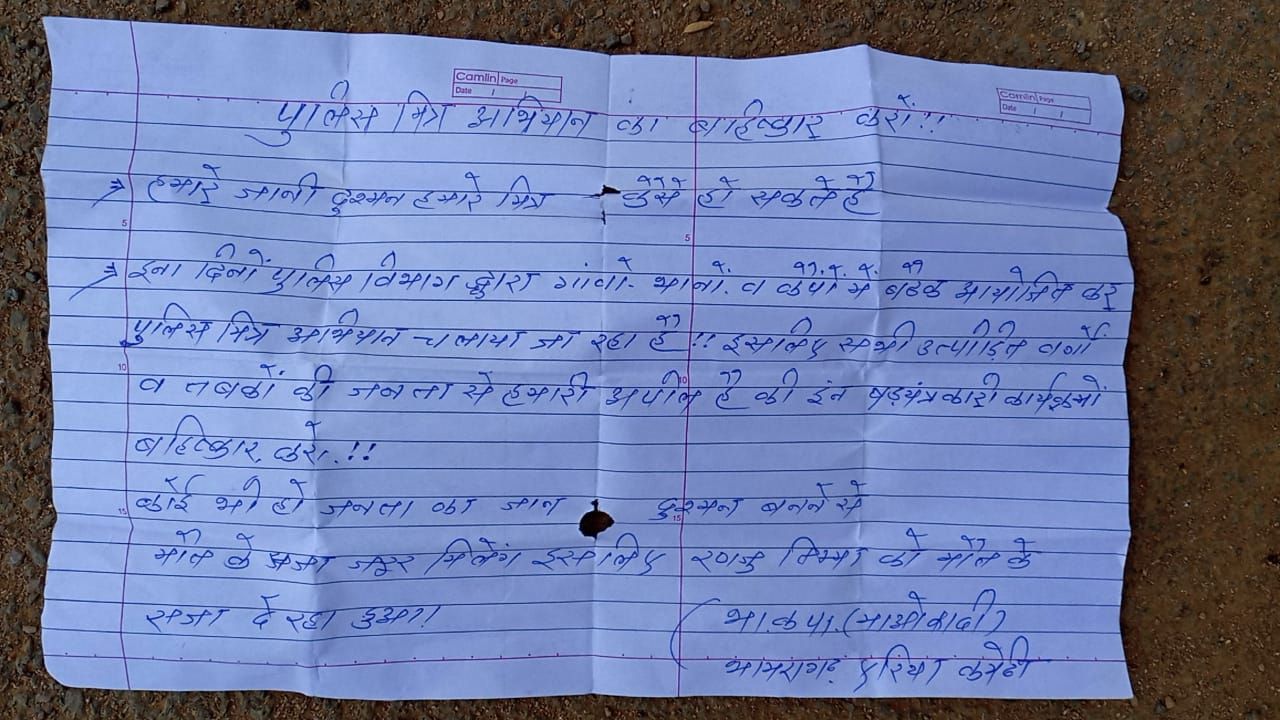 Camlin Page
Date / /
Camlin Page
Date / /
पुलिस मित्र अभियान का बहिष्कार करो.!!
⇒ हमारे जानी दुश्मन हमारे मित्र - कैसे हो सकते है
⇒ इना दिनों पुलिस विभाग द्वारा गांवो- थानो. व कैंपो में बैठके आयोजित कर
पुलिस मित्र अभियान चलाया जा रहा है!! इसलिए सभी उत्पीड़ित वर्गो
व तबकों की जनता से हमारी अपील है की इन षड़यंत्रकारी कार्यक्रमों
बहिष्कार. करो.!!
कोई भी हो जनता का जान दुश्मन बनने से
मौत के सजा जरूर मिलेंग इसलिए को मौत के
सजा दे रहा हुआ।
भा.क.पा.(माओवादी)
भामरागढ़ एरिया कमेटी
5
10
15
5
10
15